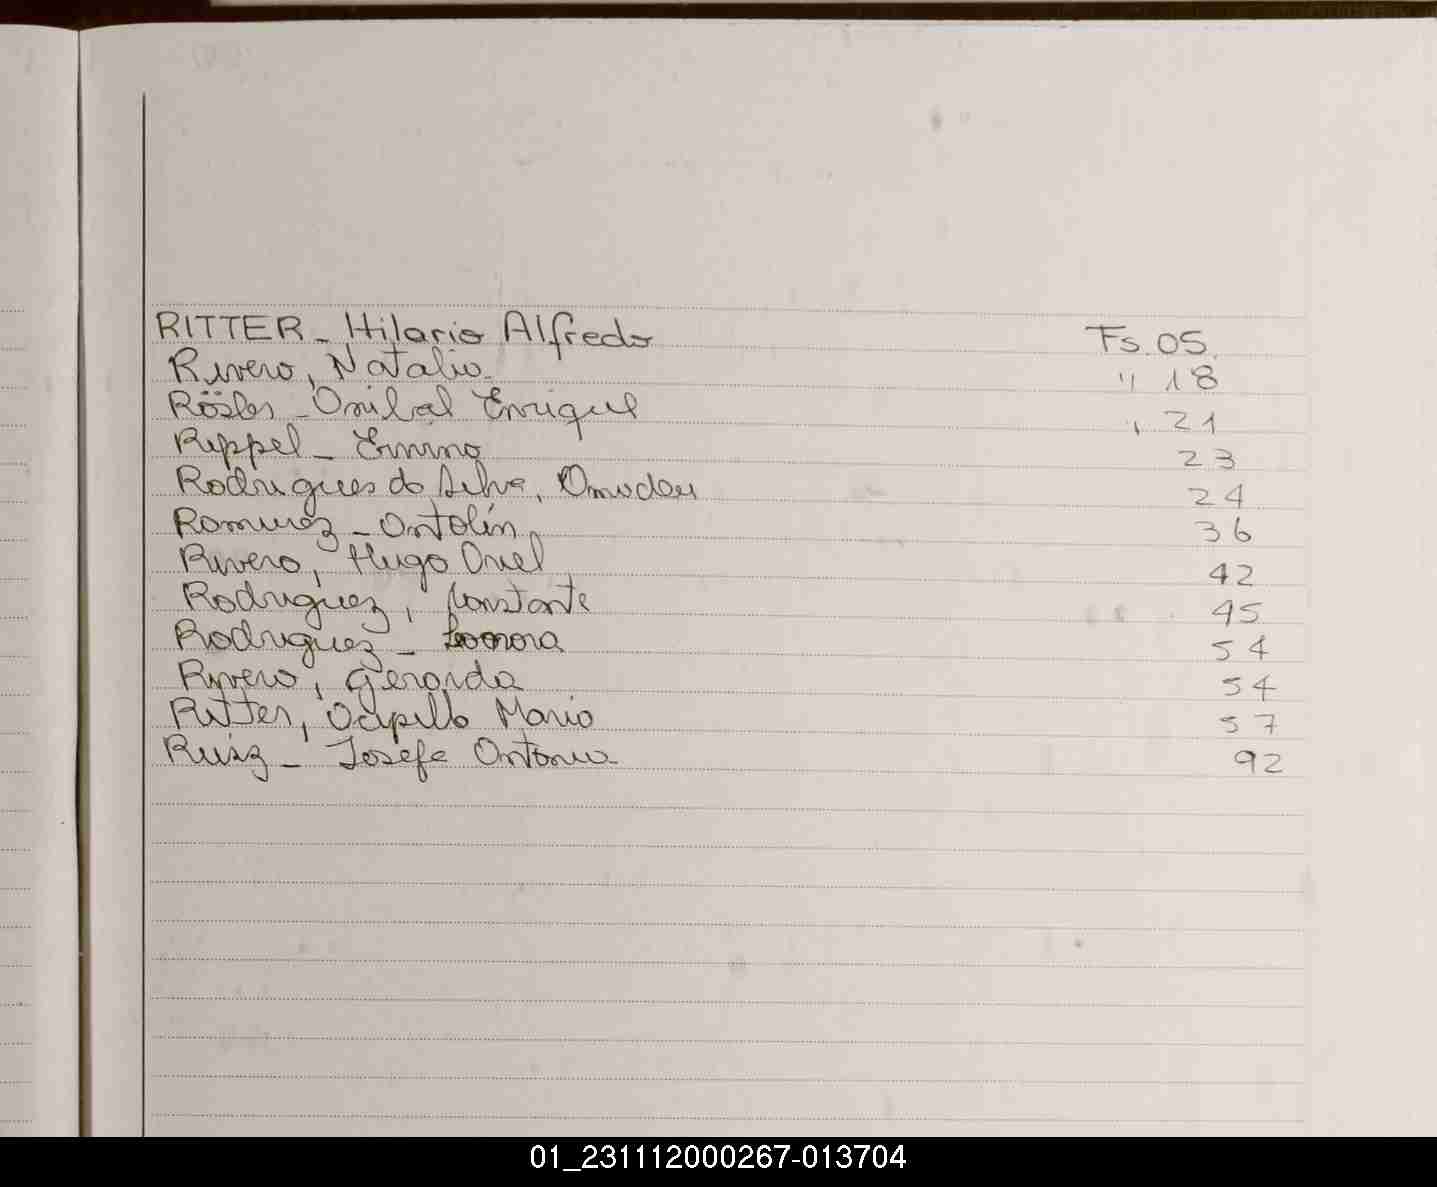 RITTER - Hilario Alfredo Fs. 05.
Rivero, Natalio - " 18
Rösler - Anibal Enrique , 21
Rippel - Erminо 23
Rodrigues do Silva, Amadeu 24
Ramirez - Antolín 36
Rivero, Hugo Ariel 42
Rodriguez, Constante 45
Rodriguez - 54
Rivero, Gerarda 54
Ritter, Mario 57
Ruiz - Josefa Antonia 92
01_231112000267-013704